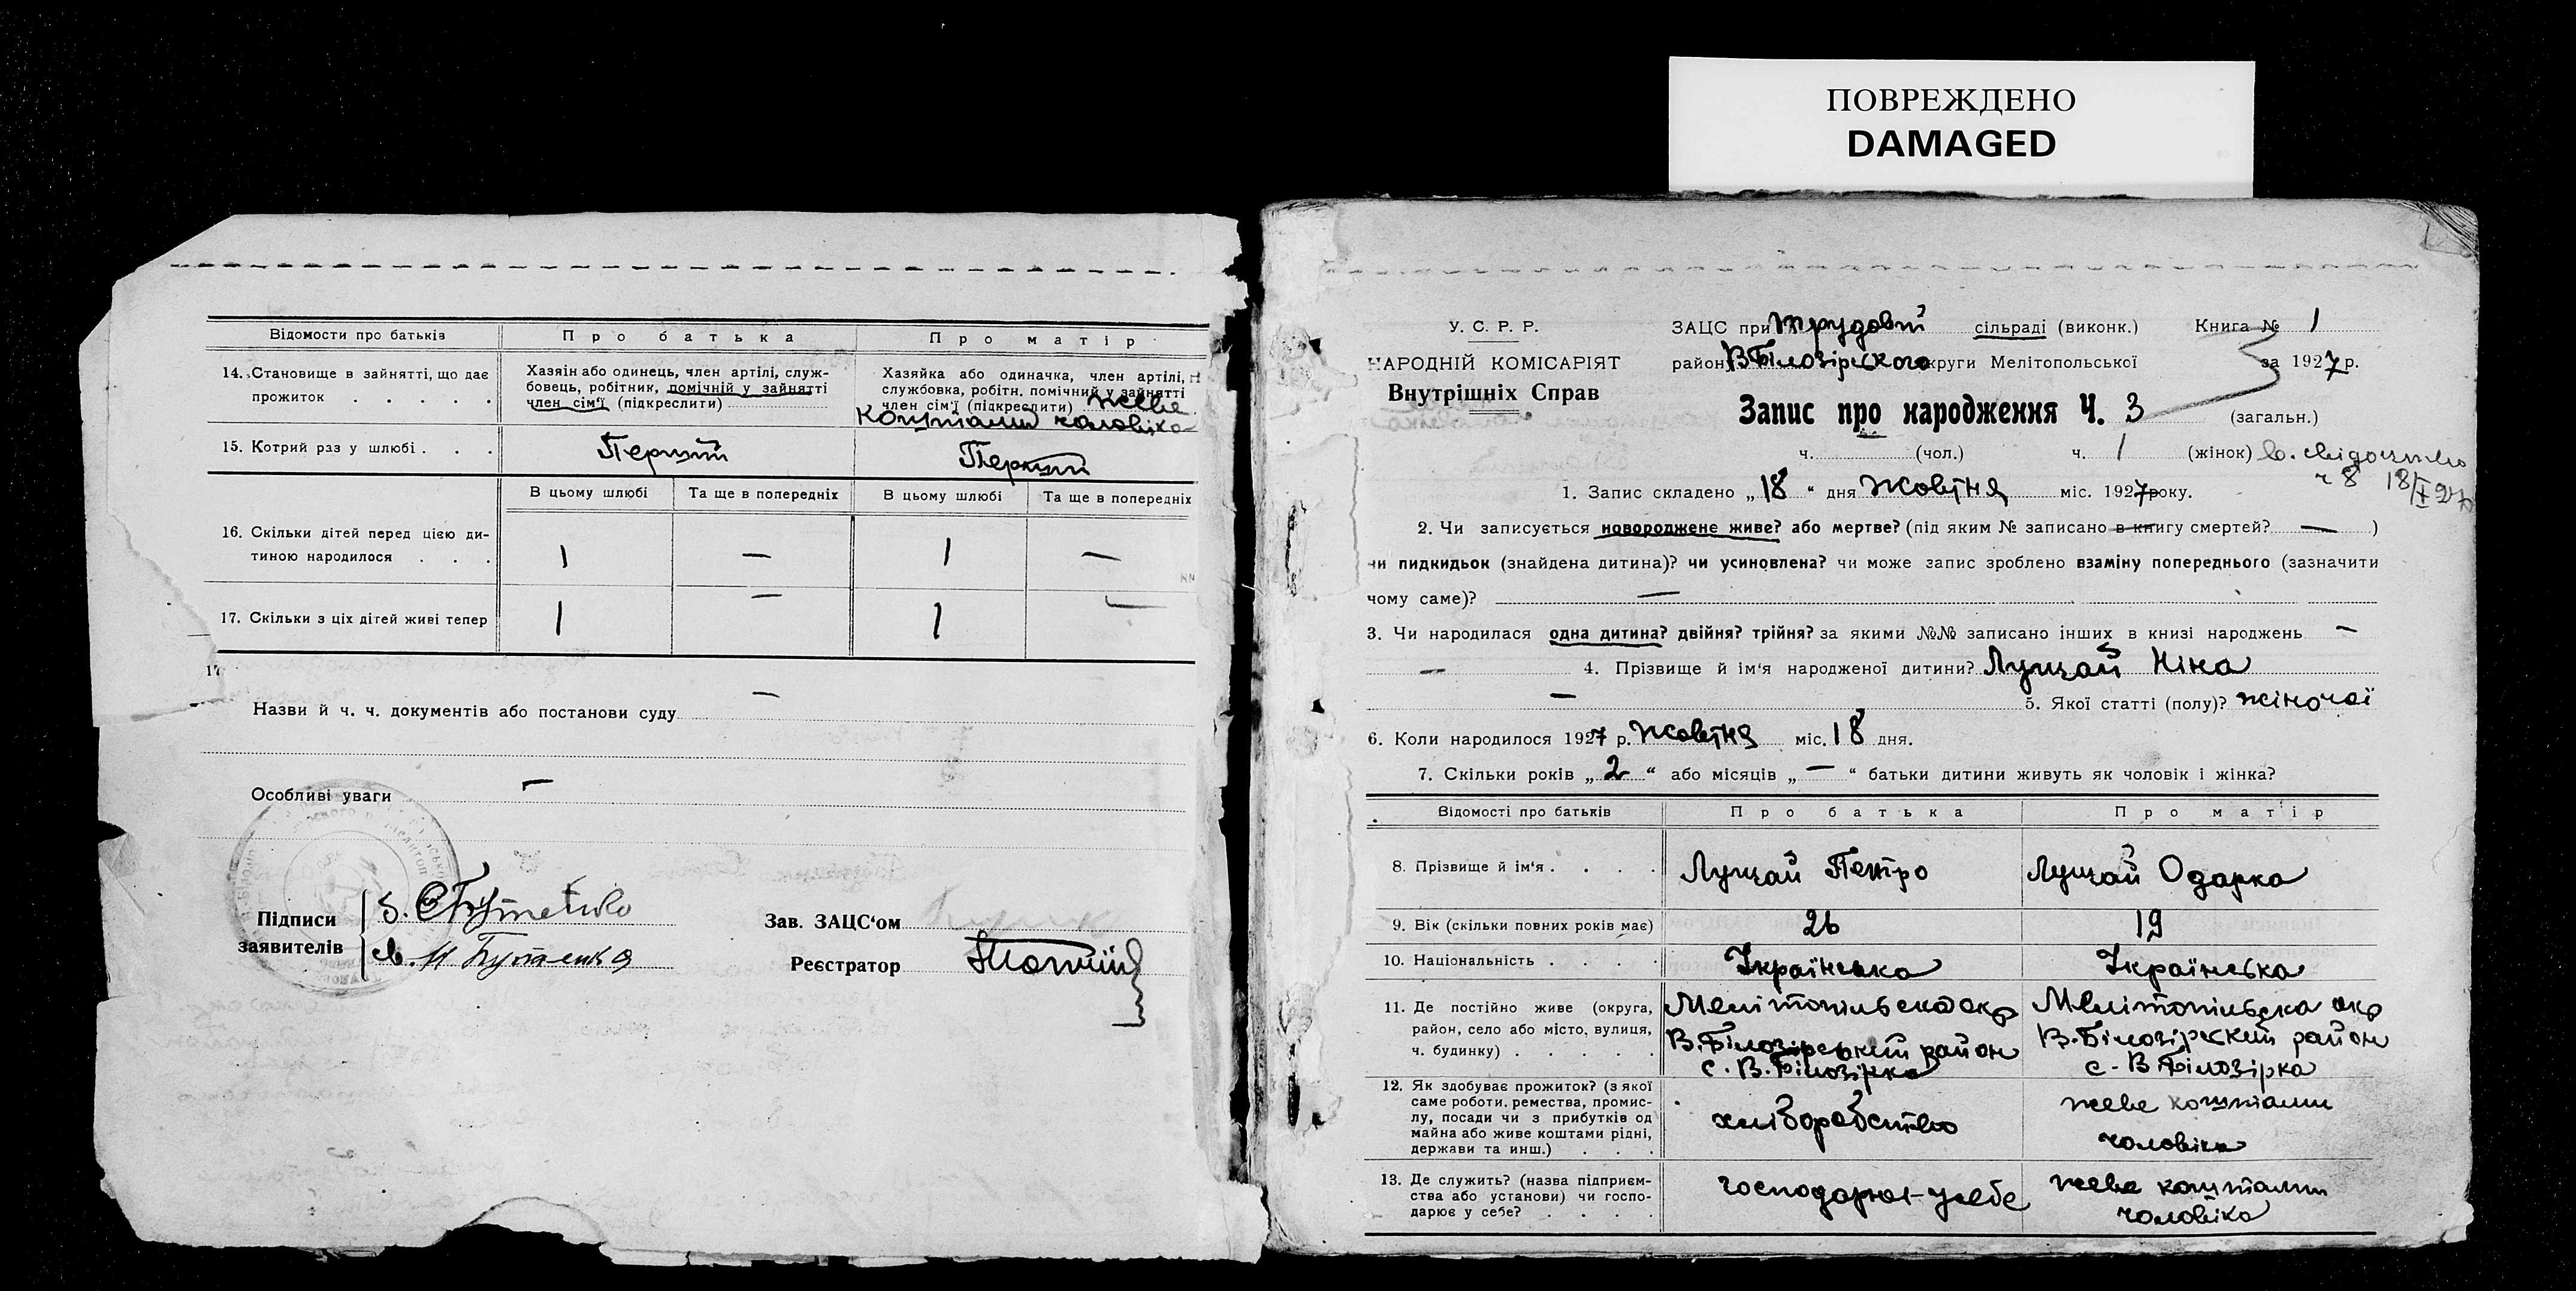 ПОВРЕЖДЕНО
DAMAGED
Відомости про батьків
Про батька
Про матір
14. Становище в зайнятті, що дає
прожиток . . . . .
Хазяін або одинець, член артілі, служ-
бовець, робітник, помічній у зайнятті
член сім'ї (підкреслити)
Хазяйка або одиначка, член артілі,
службовка, робітн. помічний у зайнятті
член сім'ї (підкреслити) живе
коштами чоловіка
15. Котрий раз у шлюбі . . .
Перший
Перший
В цьому шлюбі
Та ще в попередніх
В цьому шлюбі
Та ще в попередніх
16. Скільки дітей перед цією ди-
тиною народилося . . .
1 — 1 —
17. Скільки з ціх дітей живі тепер
1 — 1 —
17
Назви й ч. ч. документів або постанови суду —
Особливі уваги —
Підписи
заявителів
Зав. ЗАЦС'ом
Реєстратор
У. С. Р. Р.
НАРОДНІЙ КОМІСАРІЯТ
Внутрішніх Справ
ЗАЦС при Трудовій сільраді (виконк.)
Книга № 1
район В Білозірського округи Мелітопольської
за 1927 р.
Запис про народження Ч. 3 (загальн.)
ч. (чол.) ч. 1 (жінок)
ч 8 18/X 27
1. Запис складено „18" дня жовтня міс. 1927 року.
2. Чи записується новороджене живе? або мертве? (під яким № записано в книгу смертей? — )
чи пидкидьок (знайдена дитина)? чи усиновлена? чи може запис зроблено взаміну попереднього (зазначити
чому саме)? —
3. Чи народилася одна дитина? двійня? трійня? за якими №№ записано інших в книзі народжень —
— 4. Прізвище й ім'я народженої дитини? Лущай Ніна
— 5. Якої статті (полу)? жіночої
6. Коли народилося 1927 р. жовтня міс. 18 дня.
7. Скільки років „2" або місяців „—" батьки дитини живуть як чоловік і жінка?
Відомості про батьків
Про батька
Про матір
8. Прізвище й ім'я . . . .
Лущай Петро
Лущай Одарка
9. Вік (скільки повних років має)
26
19
10. Національність . . . .
Українська
Українська
11. Де постійно живе (округа,
район, село або місто, вулиця,
ч. будинку) . . . . .
Мелітопільська окр
В. Білозірський район
с. В. Білозірка
Мелітопільська окр
В. Білозірский район
с. В Білозірка
12. Як здобуває прожиток? (з якої
саме роботи, ремества, промис-
лу, посади чи з прибутків од
майна або живе коштами рідні,
держави та инш.) . . .
хліборобство
живе коштами
чоловіка
13. Де служить? (назва підприєм-
ства або установи) чи госпо-
дарює у себе? . . . .
господарює у себе
живе коштами
чоловіка